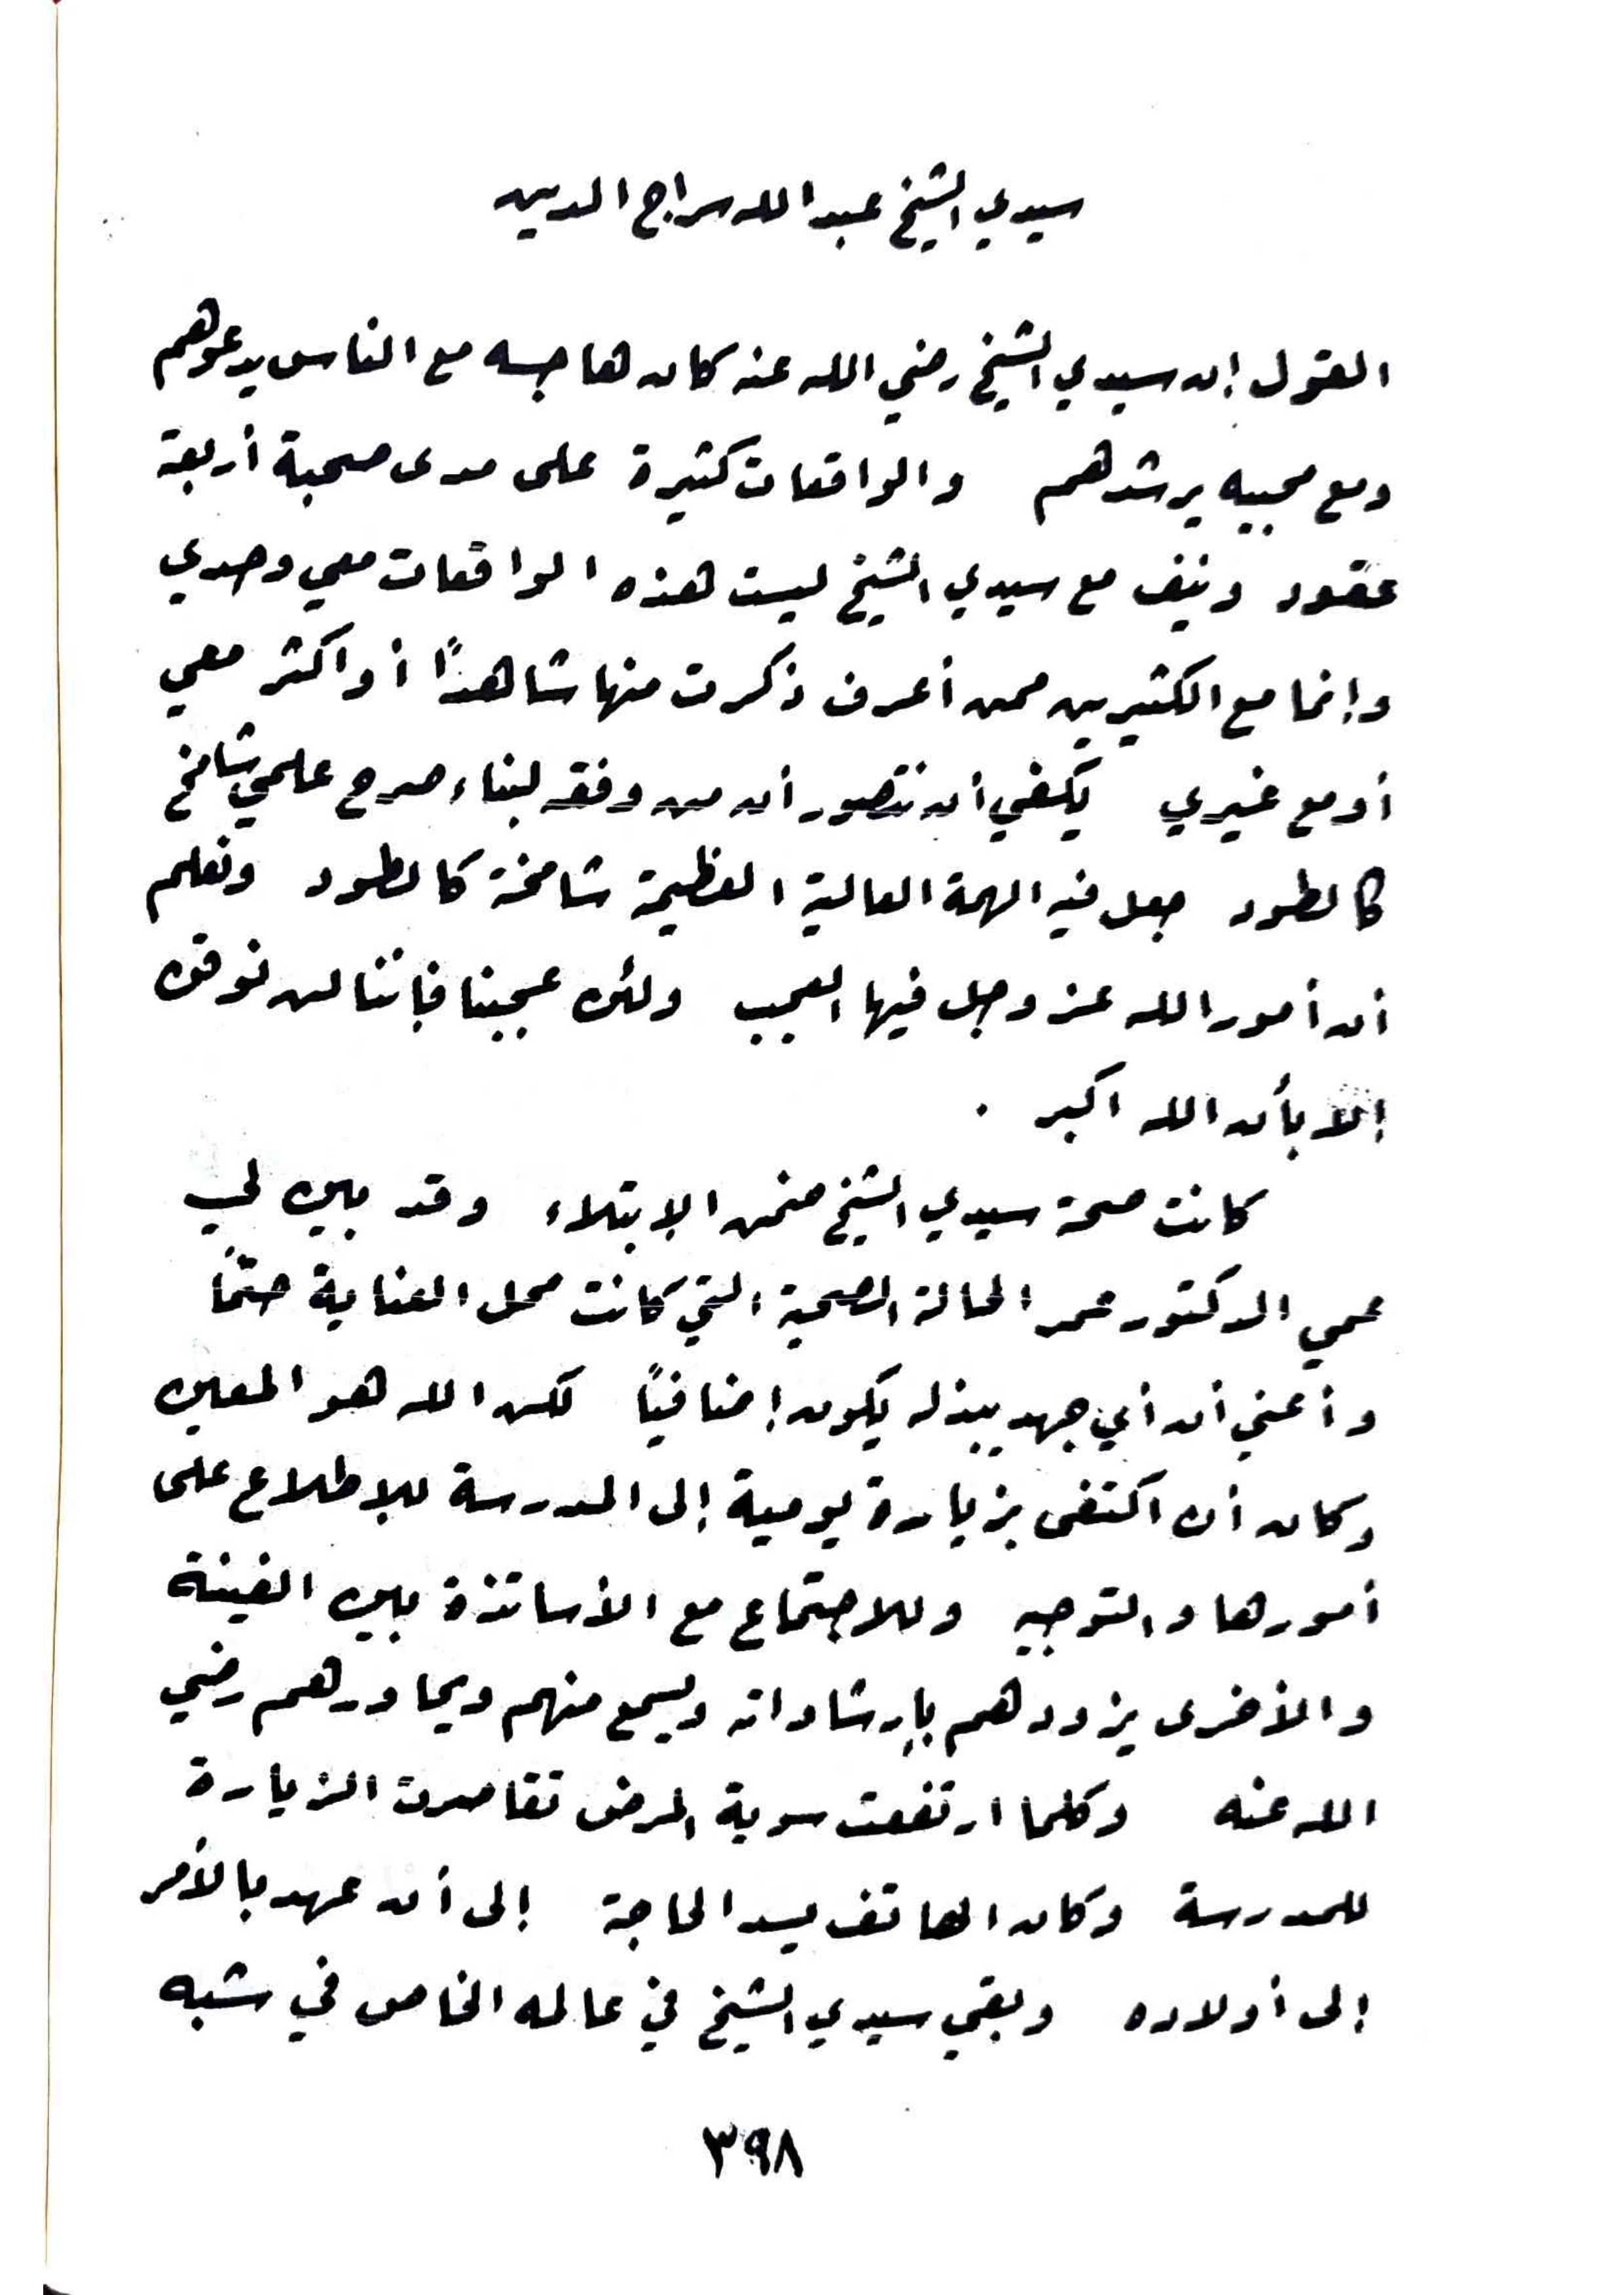 سيدي الشيخ عبد الله سراج الدين
القول إن سيدي الشيخ رضي الله عنه كان هاجسه مع الناس يدعوهم
ومع محبيه يرشدهم والواقعات كثيرة على مدى صحبة أربعة
عقود ونيف مع سيدي الشيخ ليست هذه الواقعات معي وحدي
وإنما مع الكثيرين ممن أعرف ذكرت منها شاهدًا أو اكثر معي
أو مع غيري يكفي أن نتصور أن من وفقه لبناء صرح علمي شامخ
كالطود جعل فيه الهمة العالية العظيمة شامخة كالطود ونعلم
أن أمور الله عز وجل فيها العجب ولئن عجبنا فإننا لن نوقن
إلا بأن الله اكبر .
كانت صحة سيدي الشيخ ضمن الإبتلاء وقد بين لي
عمي الدكتور عمر الحالة الصحية التي كانت محل العناية حتمًا
وأعني أن أي جهد يبذله يكون إضافيًا لكن الله هو المعين
وكان أن اكتفى بزيارة يومية إلى المدرسة للإطلاع على
أمورها والتوجيه وللاجتماع مع الأساتذة بين الفينة
والأخرى يزودهم بإرشاداته ويسمع منهم ويحاورهم رضي
الله عنه وكلما ارتفعت سوية المرض تقاصرت الزيارة
للمدرسة وكان الهاتف يسد الحاجة إلى أن عهد بالأمر
إلى أولاده وبقي سيدي الشيخ في عالمه الخاص في شبه
٣٩٨